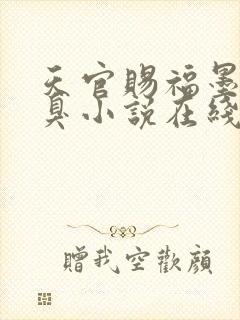 天官賜福墨
臭小說在綫
贈我空歡顏